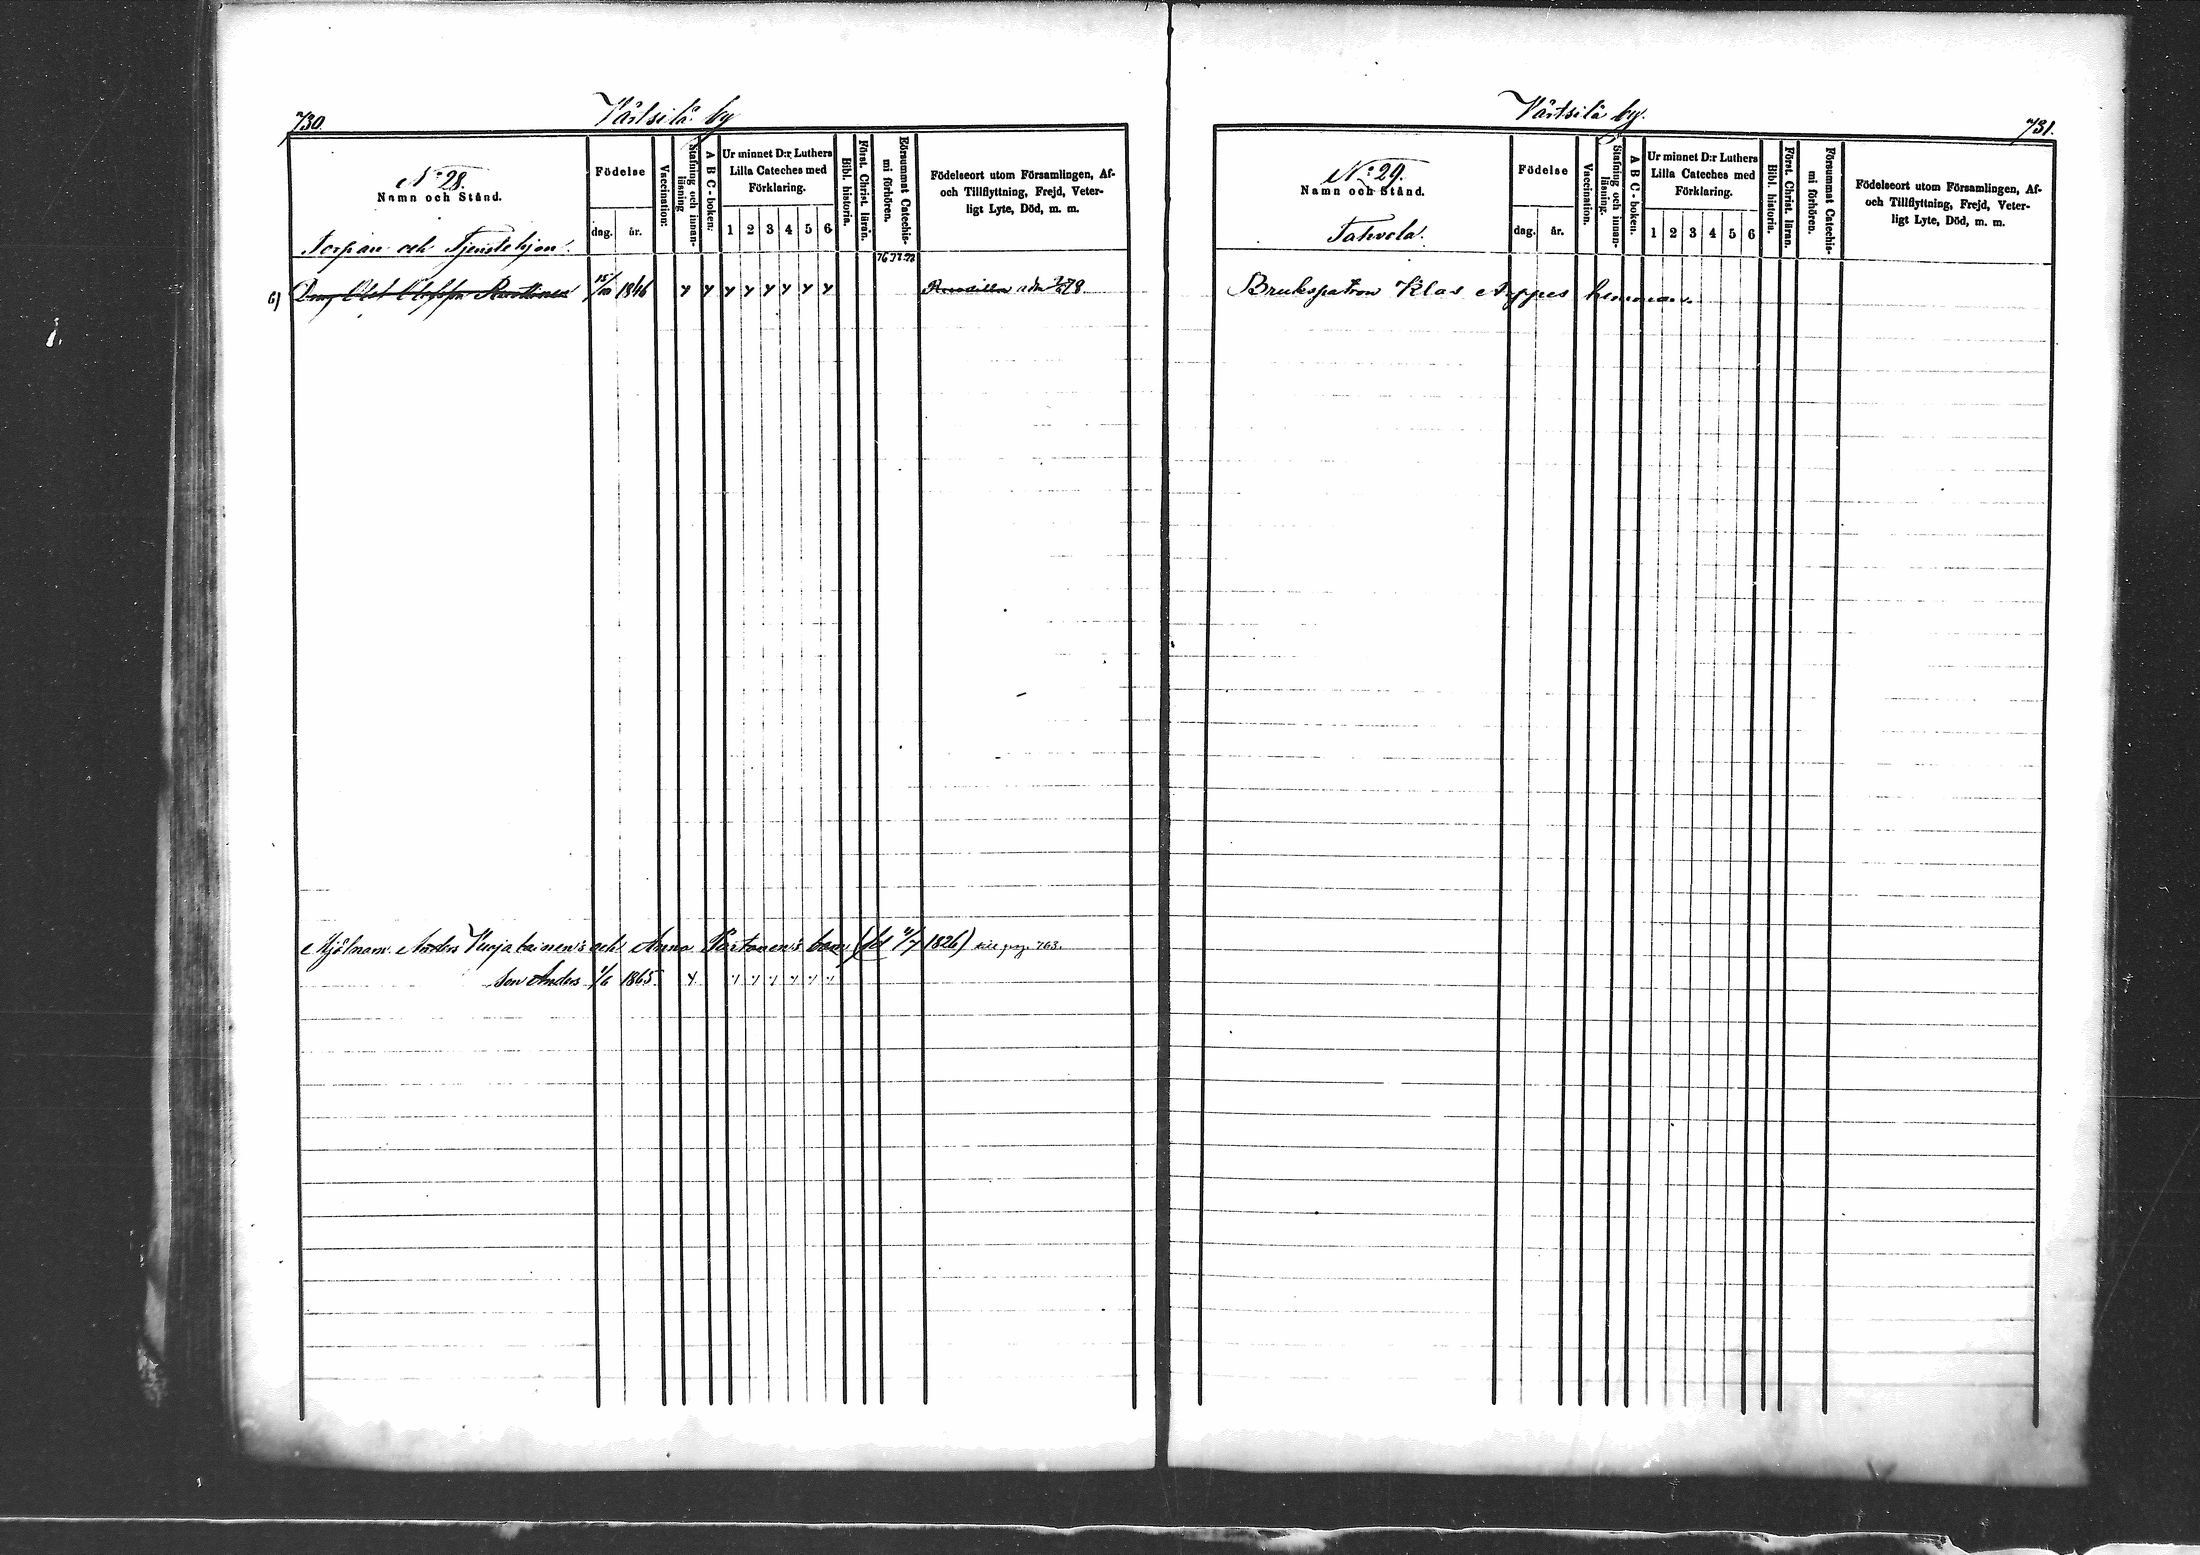 730.
Värtsilä by
No 28.
Namn och Stånd.
Torpare och Tjenstehjon.
Födelse
dag. år.
Vaccination:
Stafning och innan-
läsning
A B C-boken:
Ur minnet D:r Luthers
Lilla Cateches med
Förklaring.
1 2 3 4 5 6
Bibl. historia.
Först. Christ. läran.
Försummat Catechis-
mi förhören.
76 77 78
Födelseort utom Församlingen, Af-
och Tillflyttning, Frejd, Veter-
ligt Lyte, Död, m. m.
6) Dräng Olof Olofsson 1846
Mjölnare Anders och Anna barn (fd 1826) pag. 763.
Son Anders 1/6 1865
Värtsilä by.
731.
No 29.
Namn och Stånd.
Tahvola.
Födelse
dag. år.
Vaccination.
Stafning och innan-
läsning.
A B C-boken.
Ur minnet D:r Luthers
Lilla Cateches med
Förklaring.
1 2 3 4 5 6
Bibl. historia.
Först. Christ. läran.
Försummat Catechis-
mi förhören.
Födelseort utom Församlingen, Af-
och Tillflyttning, Frejd, Veter-
ligt Lyte, Död, m. m.
Brukspatron Klas Arppes hemman.